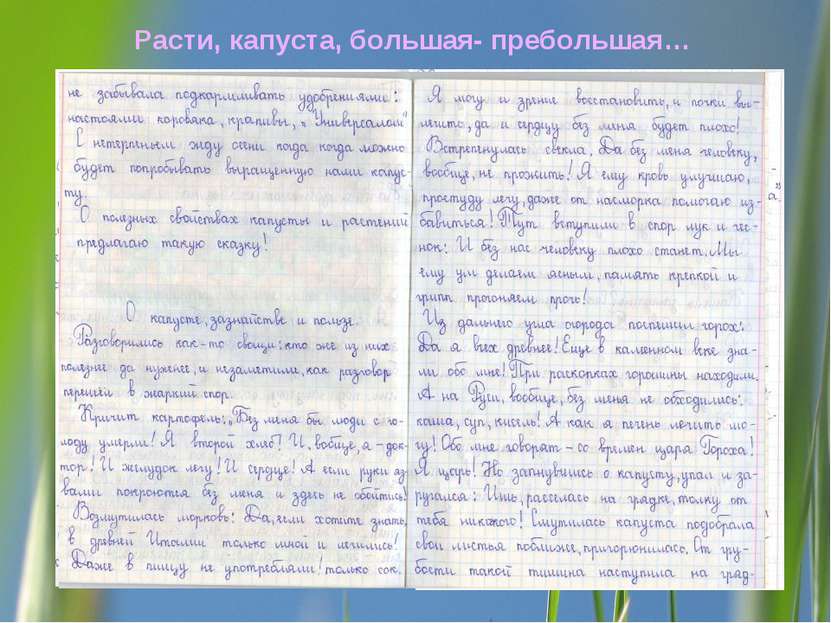 Расти, капуста, большая- пребольшая…
не забывала подкармливать удобрениями:
настоями коровяка, крапивы, „Универсалом"
С нетерпеньем жду осени когда когда можно
будет попробывать выращенную нами капус-
ту.
О полезных свойствах капусты и растений
предлагаю такую сказку!
О капусте, зазнайстве и пользе.
Разговорились как-то овощи: кто же из них
полезнее да нужнее, и незаметили, как разговор
перешёл в жаркий спор.
Кричит картофель: „Без меня бы люди с го-
лоду умерли! Я второй хлеб! И, вобще, я - док-
тор! И желудок лечу! И сердце! А если руки яз-
вами покроются без меня и здесь не обойтись!
Возмутилась морковь: Да, если хотите знать,
в древней Италии только мной и лечились!
Даже в пищу не употребляли! только сок.
Я могу и зрение восстановить, и почки вы-
лечить, да и сердцу без меня будет плохо!
Встрепенулась свекла. Да без меня человеку,
вообще, не прожить! Я ему кровь улучшаю,
простуду лечу, даже от насморка помогаю из-
бавиться! Тут вступили в спор лук и чес-
нок: И без нас человеку плохо станет. Мы
ему ум делаем ясным, память крепкой и
грипп прогоняем прочь!
Из дальнего угла огорода поспешил горох:
Да я всех древнее! Еще в каменном веке зна-
ли обо мне! При раскопках горошины находили.
А на Руси, вообще, без меня не обходились:
каша, суп, кисель! А как я печень лечить мо-
гу! Обо мне говорят - со времен царя Гороха!
Я царь! Но запнувшись о капусту, упал и за-
ругался: Ишь, расселась на грядке, толку от
тебя никакого! Смутилась капуста подобрала
свои листья поближе, пригорюнилась. От гру-
бости такой тишина наступила на гряд-